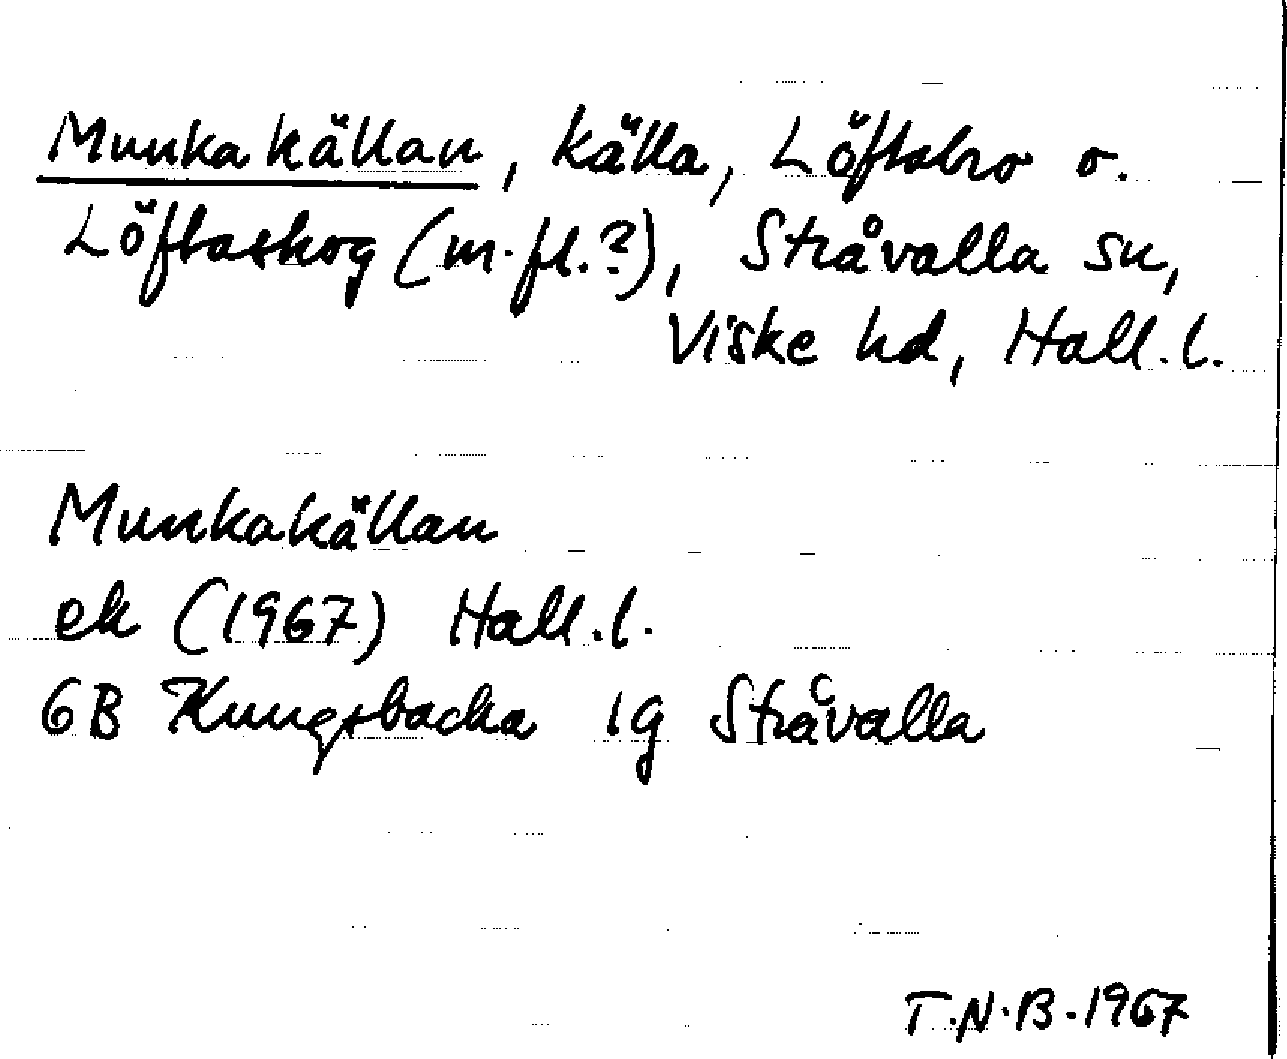 Munkakällan, källa, Löftabro o.
Löftaskog (m.fl.?), Stråvalla sn,
Viske hd, Hall.l.
Munkakällan
ek (1967) Hall.l.
6B Kungsbacka 1g Stråvalla
T.N.B.1967